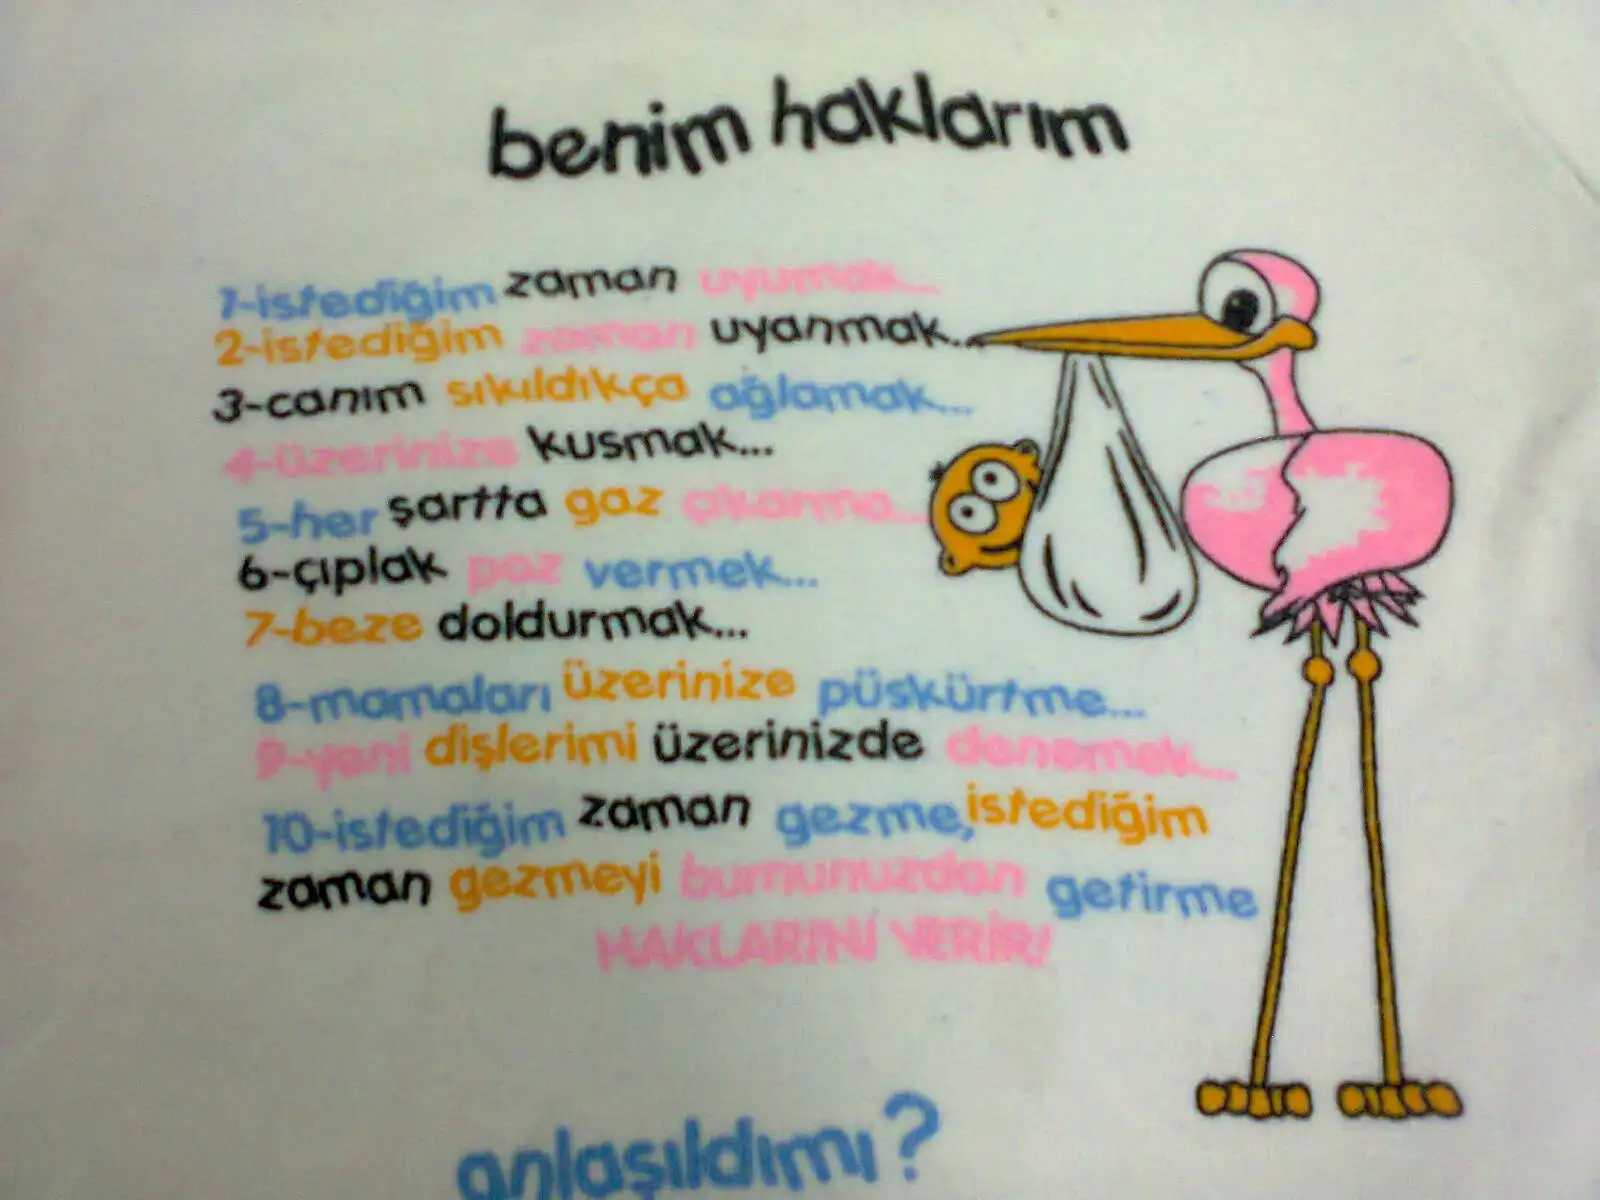 benim haklarım
1-istediğim zaman uyumak...
2-istediğim zaman uyanmak...
3-canım sıkıldıkça ağlamak...
4-üzerinize kusmak...
5-her şartta gaz çıkarma...
6-çıplak poz vermek...
7-beze doldurmak...
8-mamaları üzerinize püskürtme...
9-yeni dişlerimi üzerinizde denemek...
10-istediğim zaman gezme,istediğim
zaman gezmeyi burnunuzdan getirme
HAKLARINI VERİR!
anlaşıldımı?